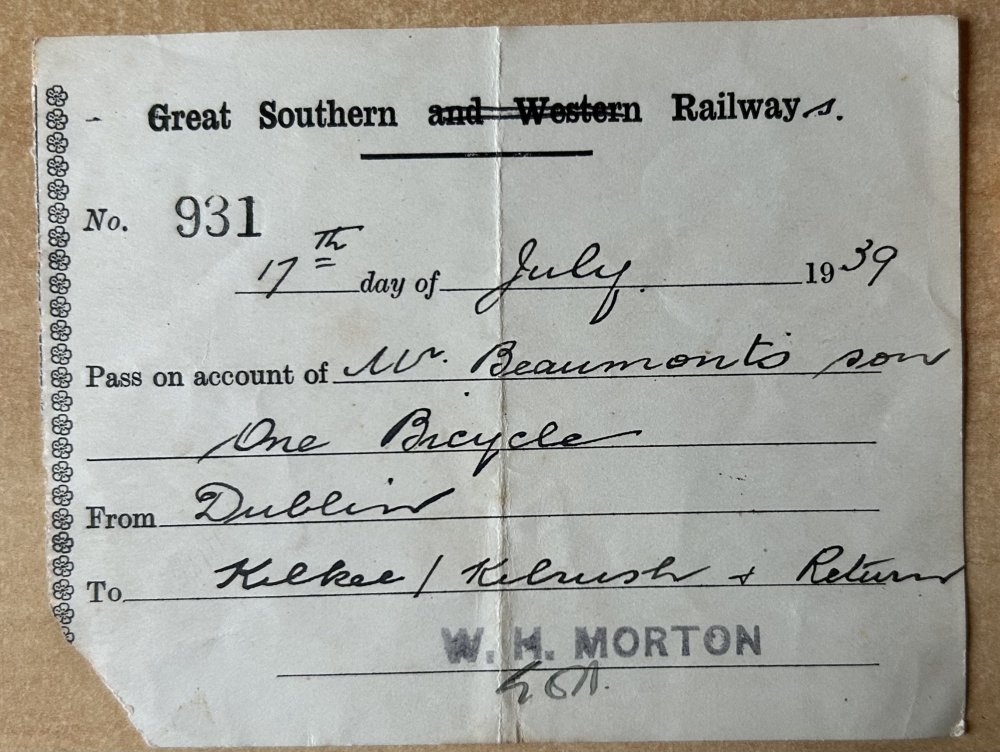 Great Southern and Western Railways.
No. 931
17th day of July. 1939
Pass on account of Mr. Beaumont's son
One Bicycle
From Dublin
To Kilkee / Kilrush + Return
W. H. MORTON